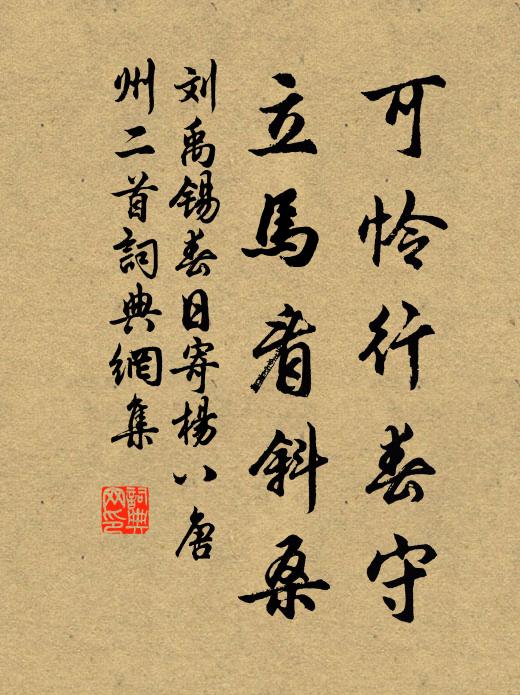 可怜行春守
立馬看斜桑
刘禹锡春日寄楊八唐
州二首詞典網集
詞典網印